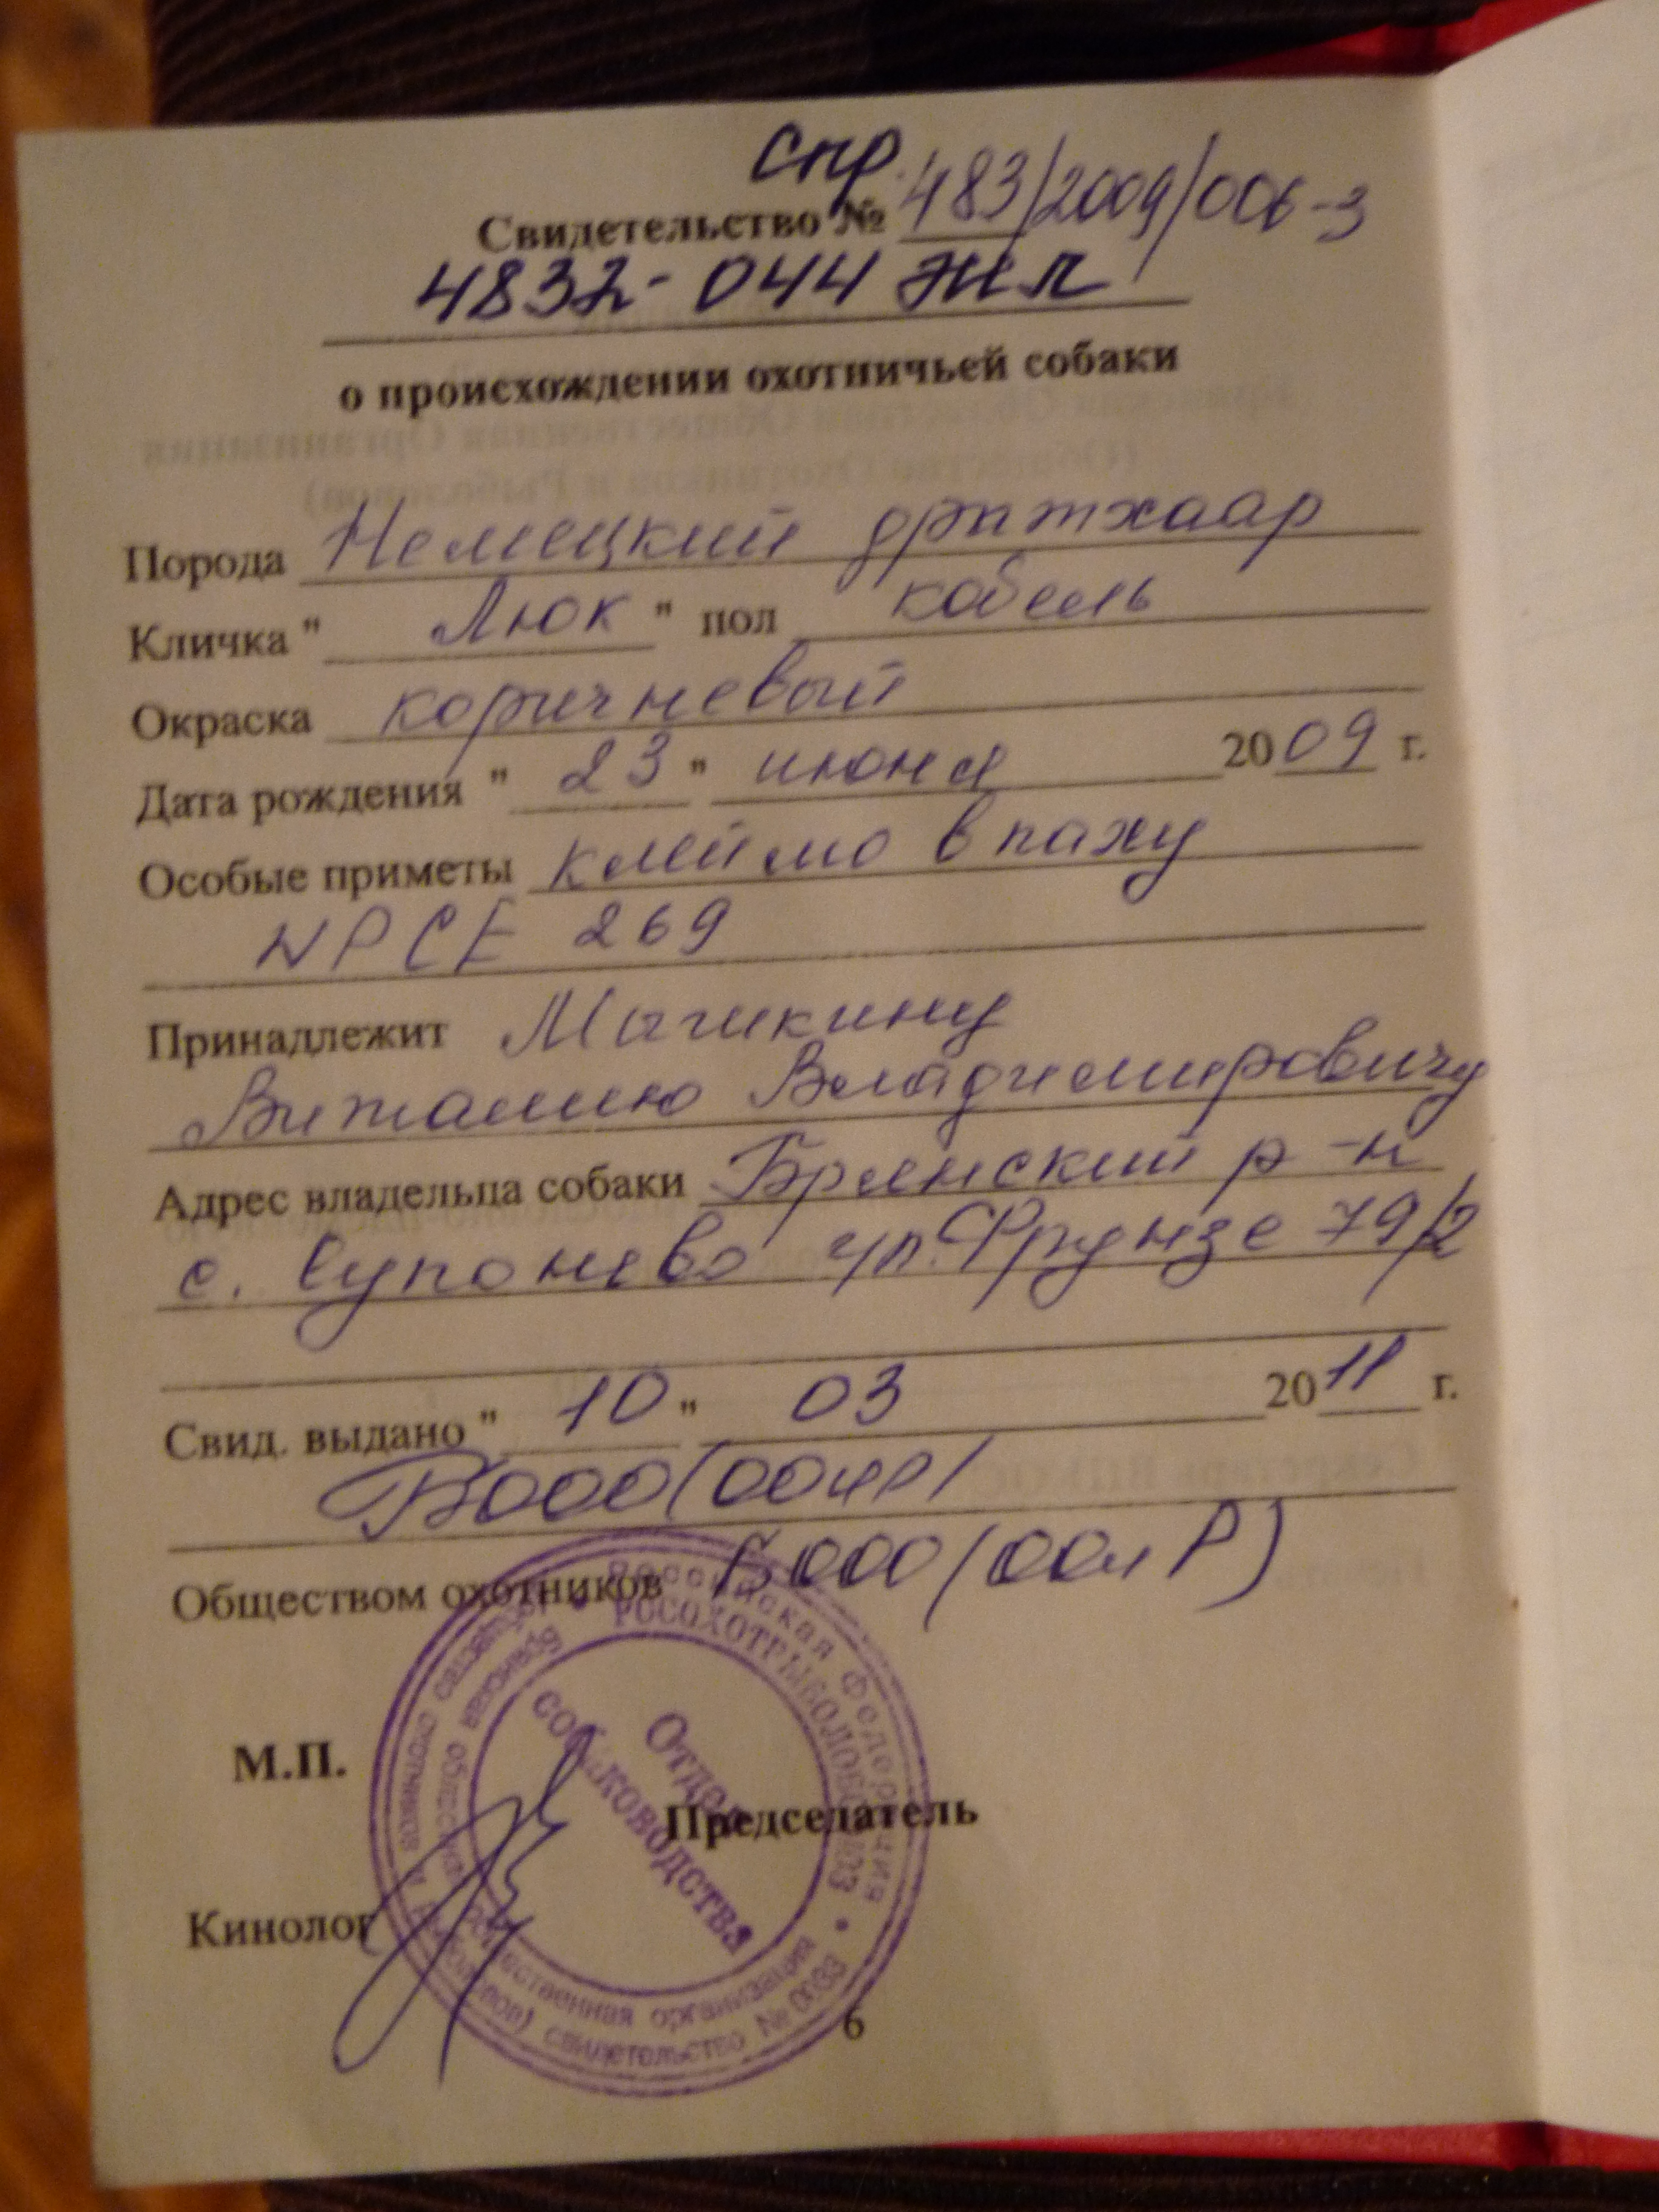 спр.
Свидетельство № 483/2009/006-3
о происхождении охотничьей собаки
Порода Немецкий дратхаар
Кличка " Люк " пол кобель
Окраска коричневый
Дата рождения " 23 " июня 2009 г.
Особые приметы клеймо в паху
NPCE 269
Принадлежит
Виталию Владимировичу
Адрес владельца собаки Брянский р-н
с. Супонево ул. Фрунзе 79/2
Свид. выдано " 10 " 03 2011 г.
БООО(ООиР)
Обществом охотников БООО(ООиР)
Российская Федерация
РОСОХОТРЫБОЛОВСОЮЗ
Брянская областная общественная организация
охотников и рыболовов) свидетельство № 0033
Отдел
собаководства
М.П.
Председатель
Кинолог
6